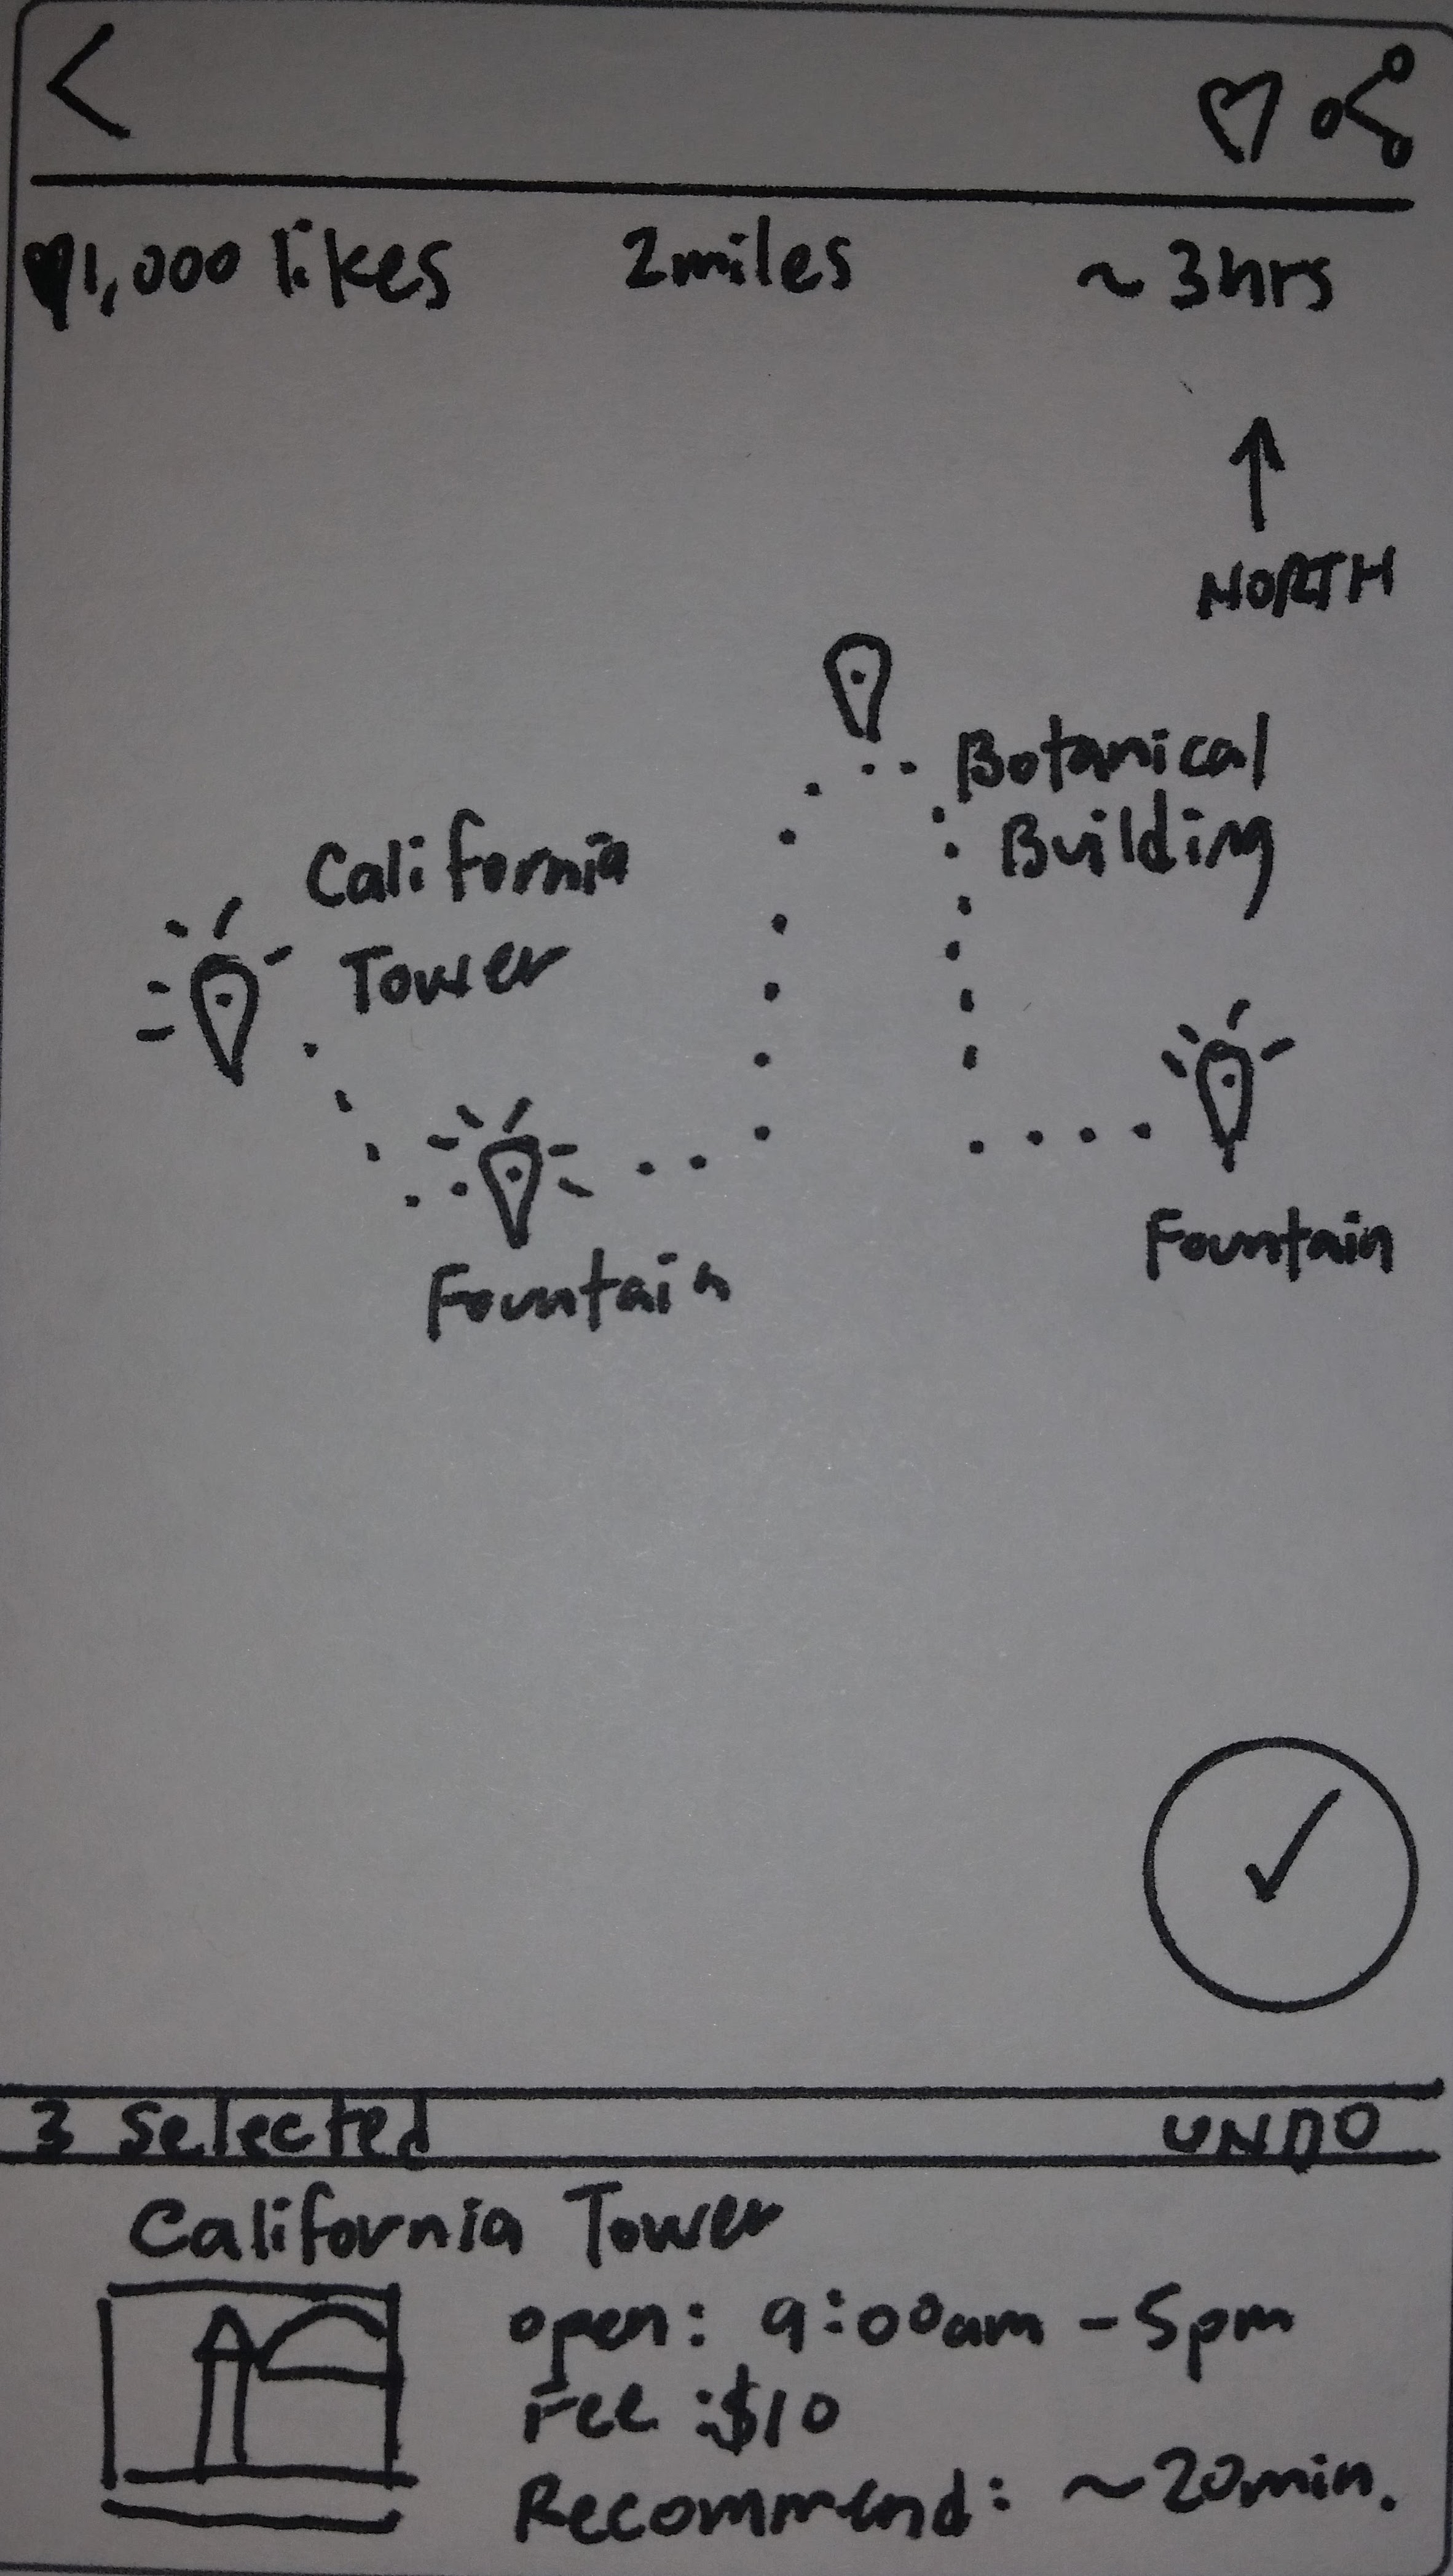 1,000 likes 2miles ~3hrs
NORTH
Botanical
Building
California
Tower
Fountain
Fountain
3 selected UNDO
California Tower
open: 9:00am - 5pm
Fee :$10
Recommend: ~20min.